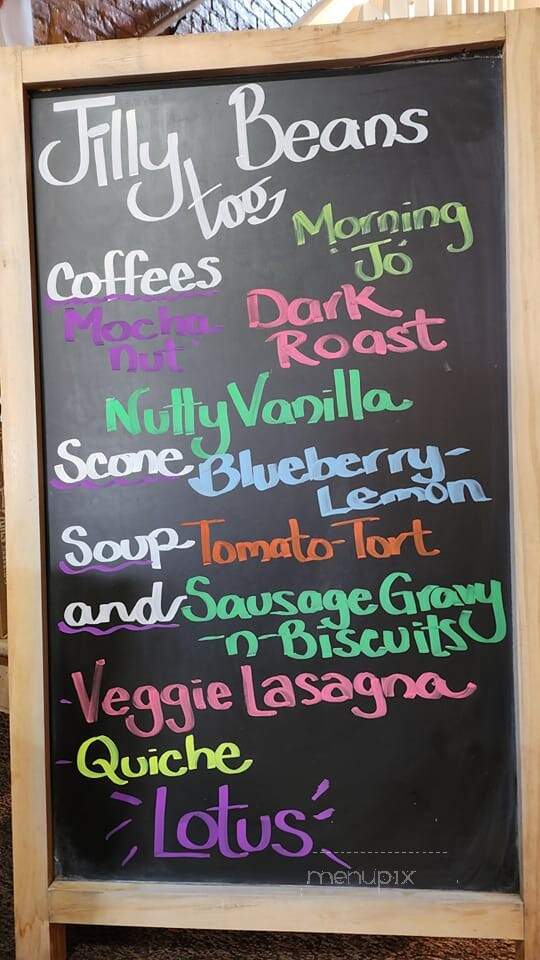 Jilly Beans
too
Morning
Jó
Coffees
Mocha
nut
Dark
Roast
Nutty Vanilla
Scone Blueberry-
Lemon
Soup Tomato-Tort
and Sausage Gravy
-n-Biscuits
Veggie Lasagna
Quiche
Lotus
menupix